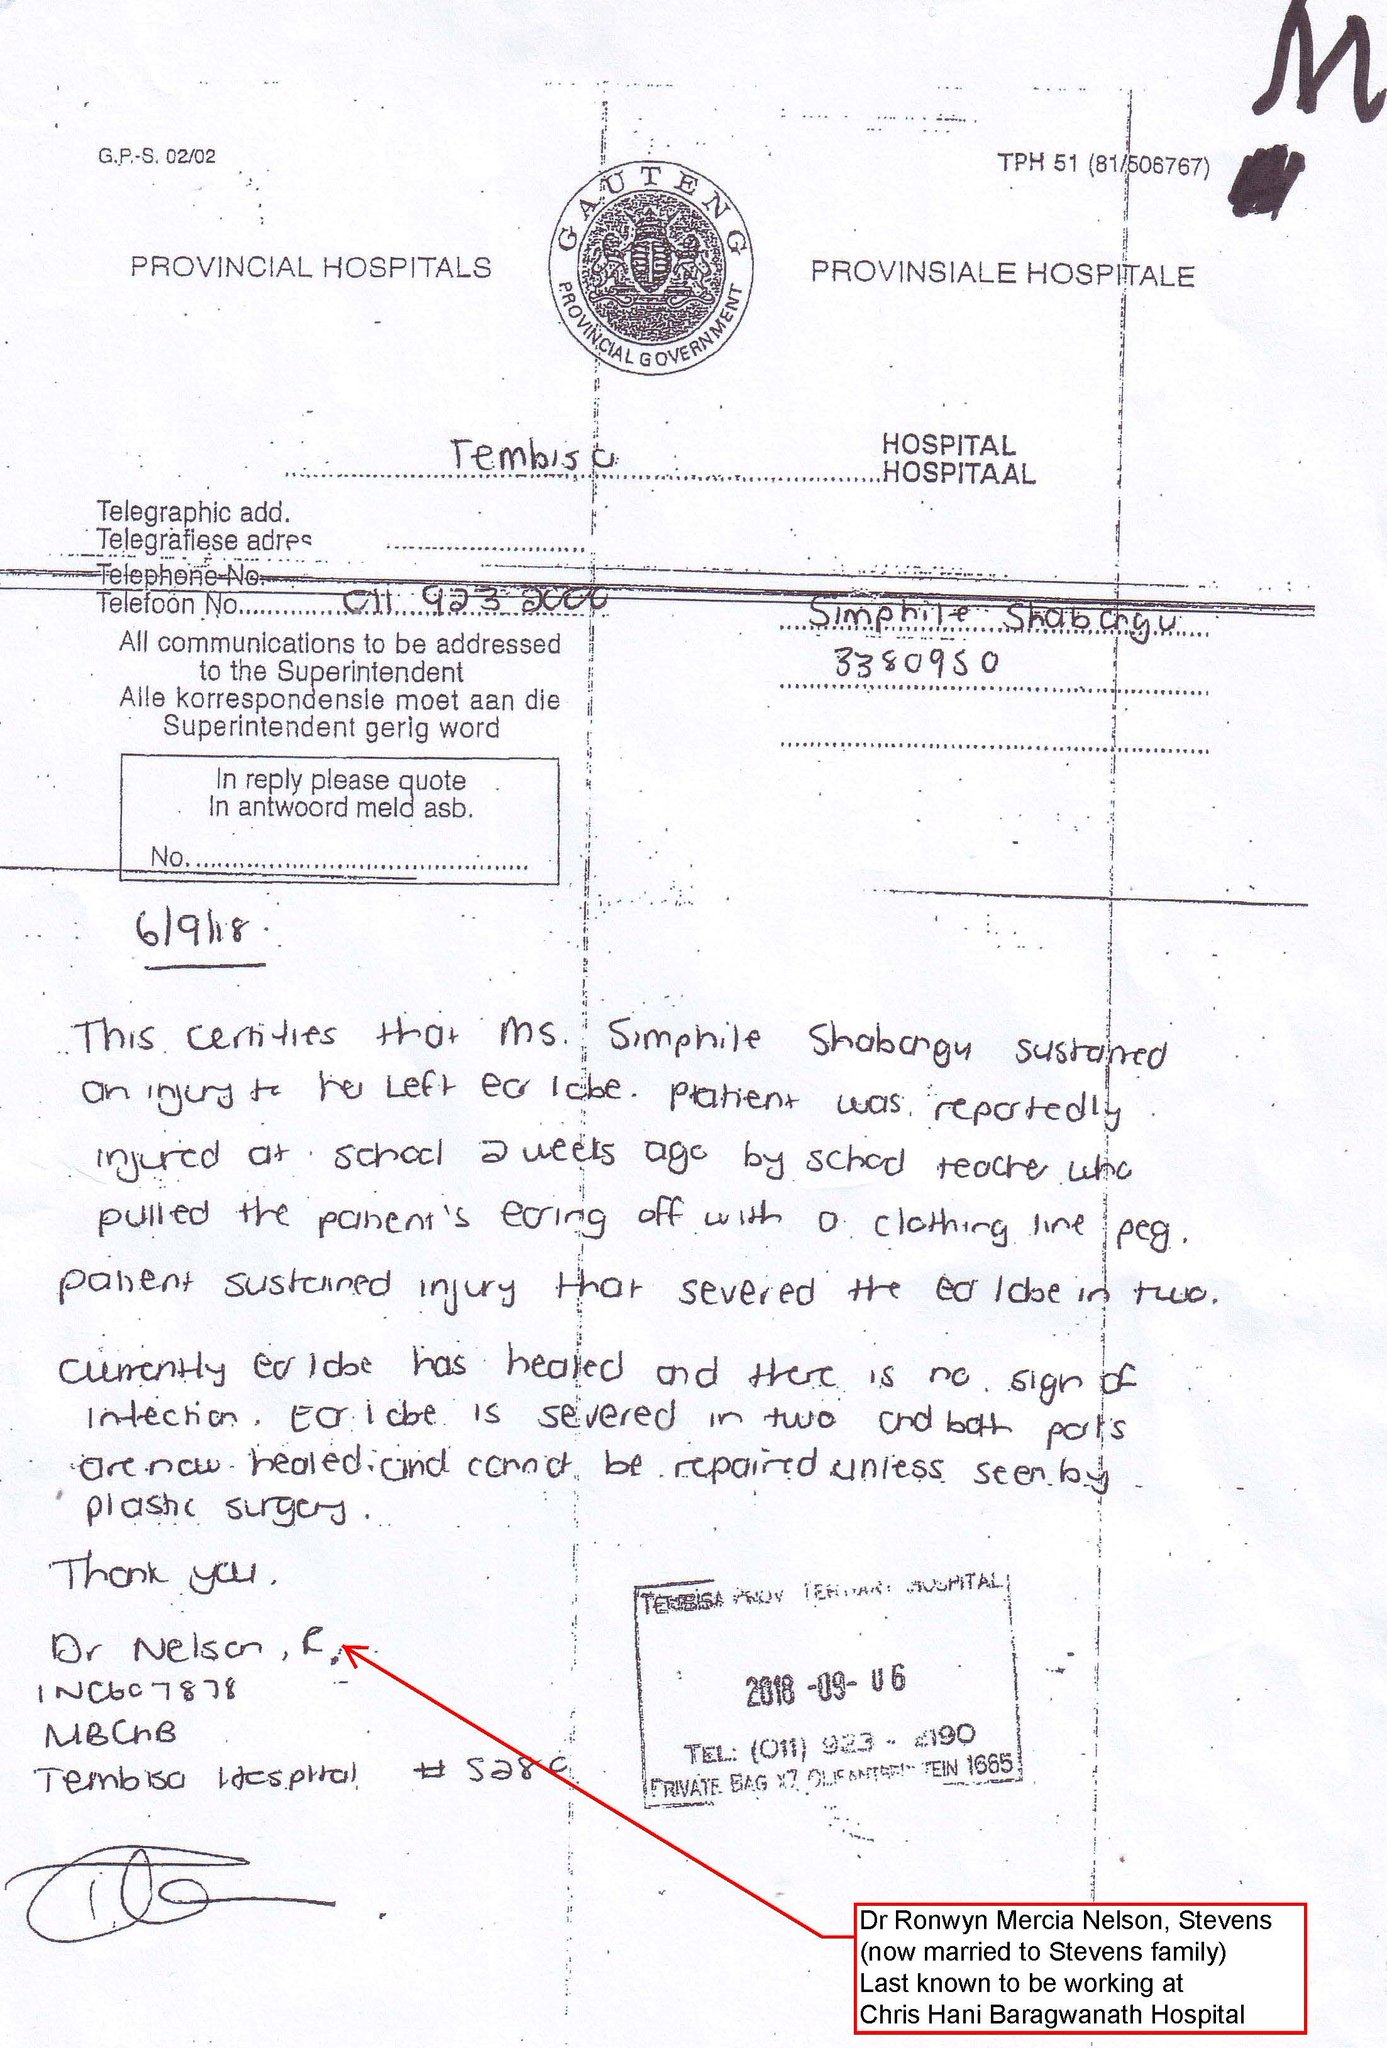 M
G.P.-S. 02/02
TPH 51 (81/506767)
GAUTENG
PROVINCIAL GOVERNMENT
PROVINCIAL HOSPITALS
PROVINSIALE HOSPITALE
Tembisa HOSPITAL
HOSPITAAL
Telegraphic add.
Telegrafiese adres
Telephone No.
Telefoon No. 011 923 2000
Simphile Shabangu
3380950
All communications to be addressed
to the Superintendent
Alle korrespondensie moet aan die
Superintendent gerig word
In reply please quote
In antwoord meld asb.
No.
6/9/18.
This certifies that Ms. Simphile Shabangu sustained
an injury to her Left ear lobe. Patient was reportedly
injured at school 2 weeks ago by school teacher who
pulled the patient's earing off with a clothing line peg.
Patient sustained injury that severed the ear lobe in two.
Currently ear lobe has healed and there is no sign of
infection. Ear lobe is severed in two and both parts
are now healed and cannot be repaired unless seen by
plastic surgery.
Thank you.
Dr Nelson, R.
MBChB
Tembisa Hospital
TEMBISA PROV TERTIARY HOSPITAL
2018 -09- 06
TEL: (011) 923 - 2190
PRIVATE BAG X7, OLIFANTSFONTEIN 1665
Dr Ronwyn Mercia Nelson, Stevens
(now married to Stevens family)
Last known to be working at
Chris Hani Baragwanath Hospital